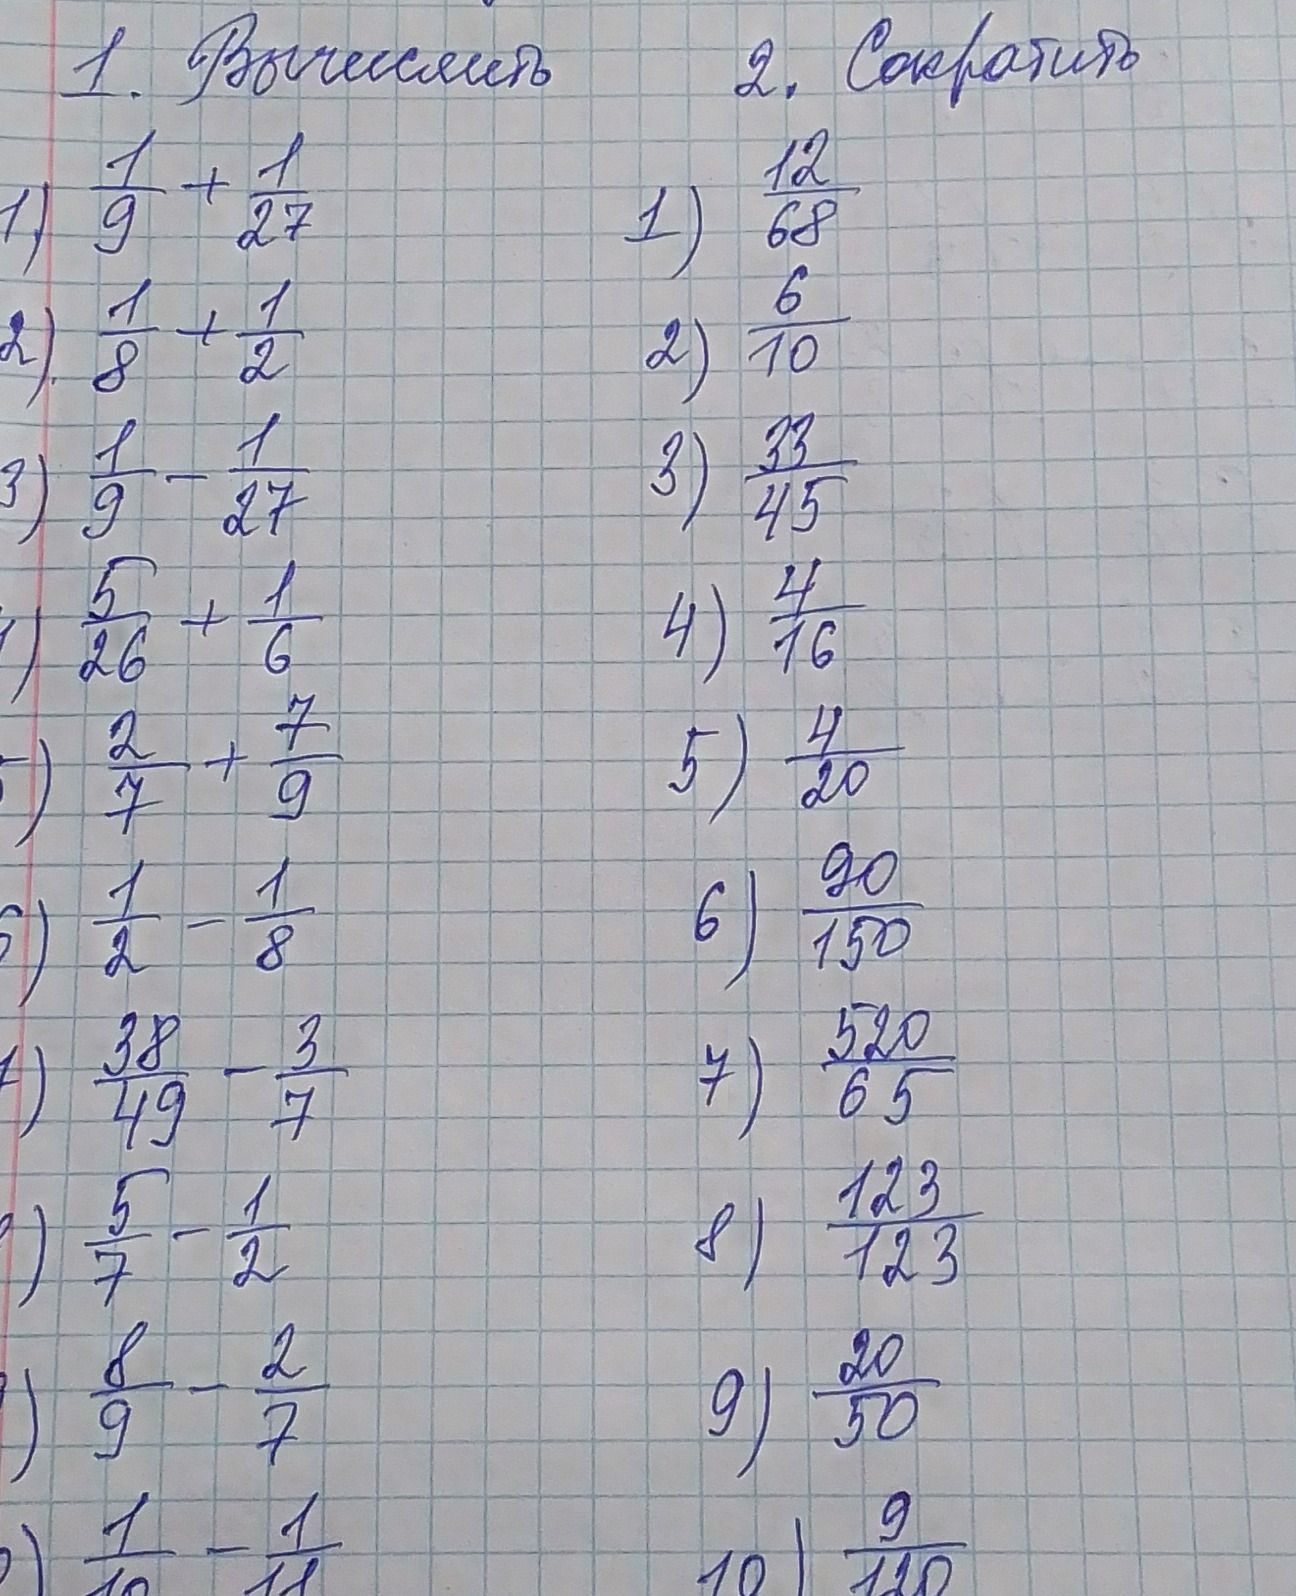 1. Вычислить
1) 1/9 + 1/27
2) 1/8 + 1/2
3) 1/9 - 1/27
4) 5/26 + 1/6
5) 2/7 + 7/9
6) 1/2 - 1/8
7) 38/49 - 3/7
) 5/7 - 1/2
) 8/9 - 2/7
) 1/10 - 1/11
2. Сократить
1) 12/68
2) 6/10
3) 33/45
4) 4/16
5) 4/20
6) 90/150
7) 520/65
8) 123/123
9) 20/50
10) 9/120